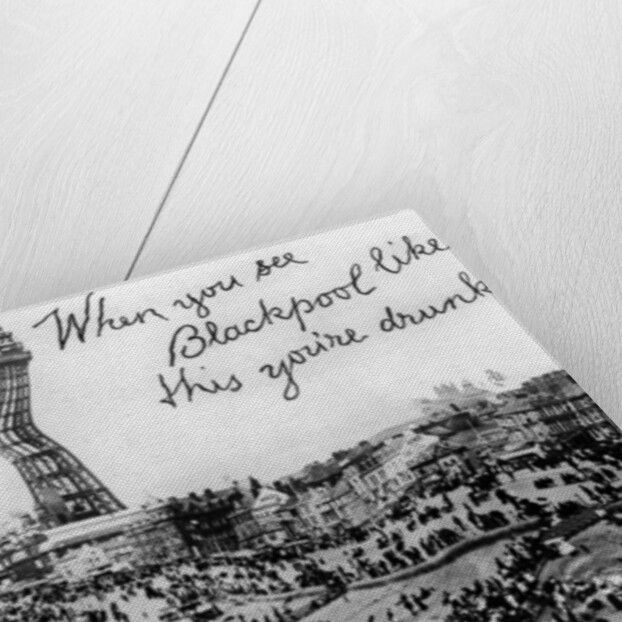 When you see
Blackpool like
this you're drunk